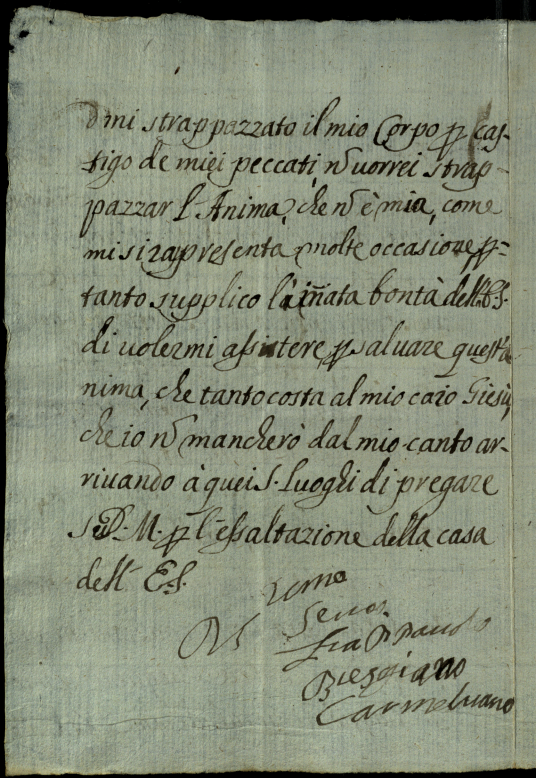 mi strappazzato il mio Corpo p cas-
tigo de miei peccati nō uorrei strap-
pazzar l'Anima, che nō è mia, come
mi si rapresenta molte occasione, p-
tanto supplico l'iñata bontà dell'E.S.
di uolermi assistere, p saluare quest'a
nima, che tanto costa al mio caro Giesù,
che io nō mancherò dal mio canto ar-
riuando à quei S. Luoghi di pregare
S.D.M. p l'essaltazione della casa
dell' E.S.
Seruo
Fra
Carmelitano